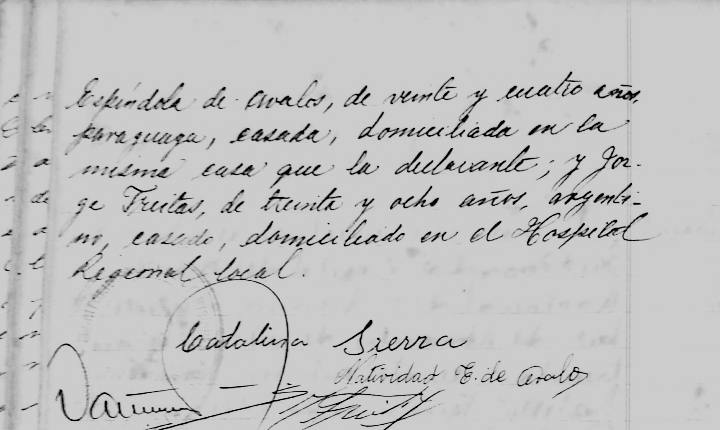 Espíndola de Avalos, de veinte y cuatro años,
paraguaya, casada, domiciliada en la
misma casa que la declarante; y Jor-
ge Freitas, de treinta y ocho años, argenti-
no, casado, domiciliado en el Hospital
Regional local.
Catalina Sierra
Natividad E. de Avalos